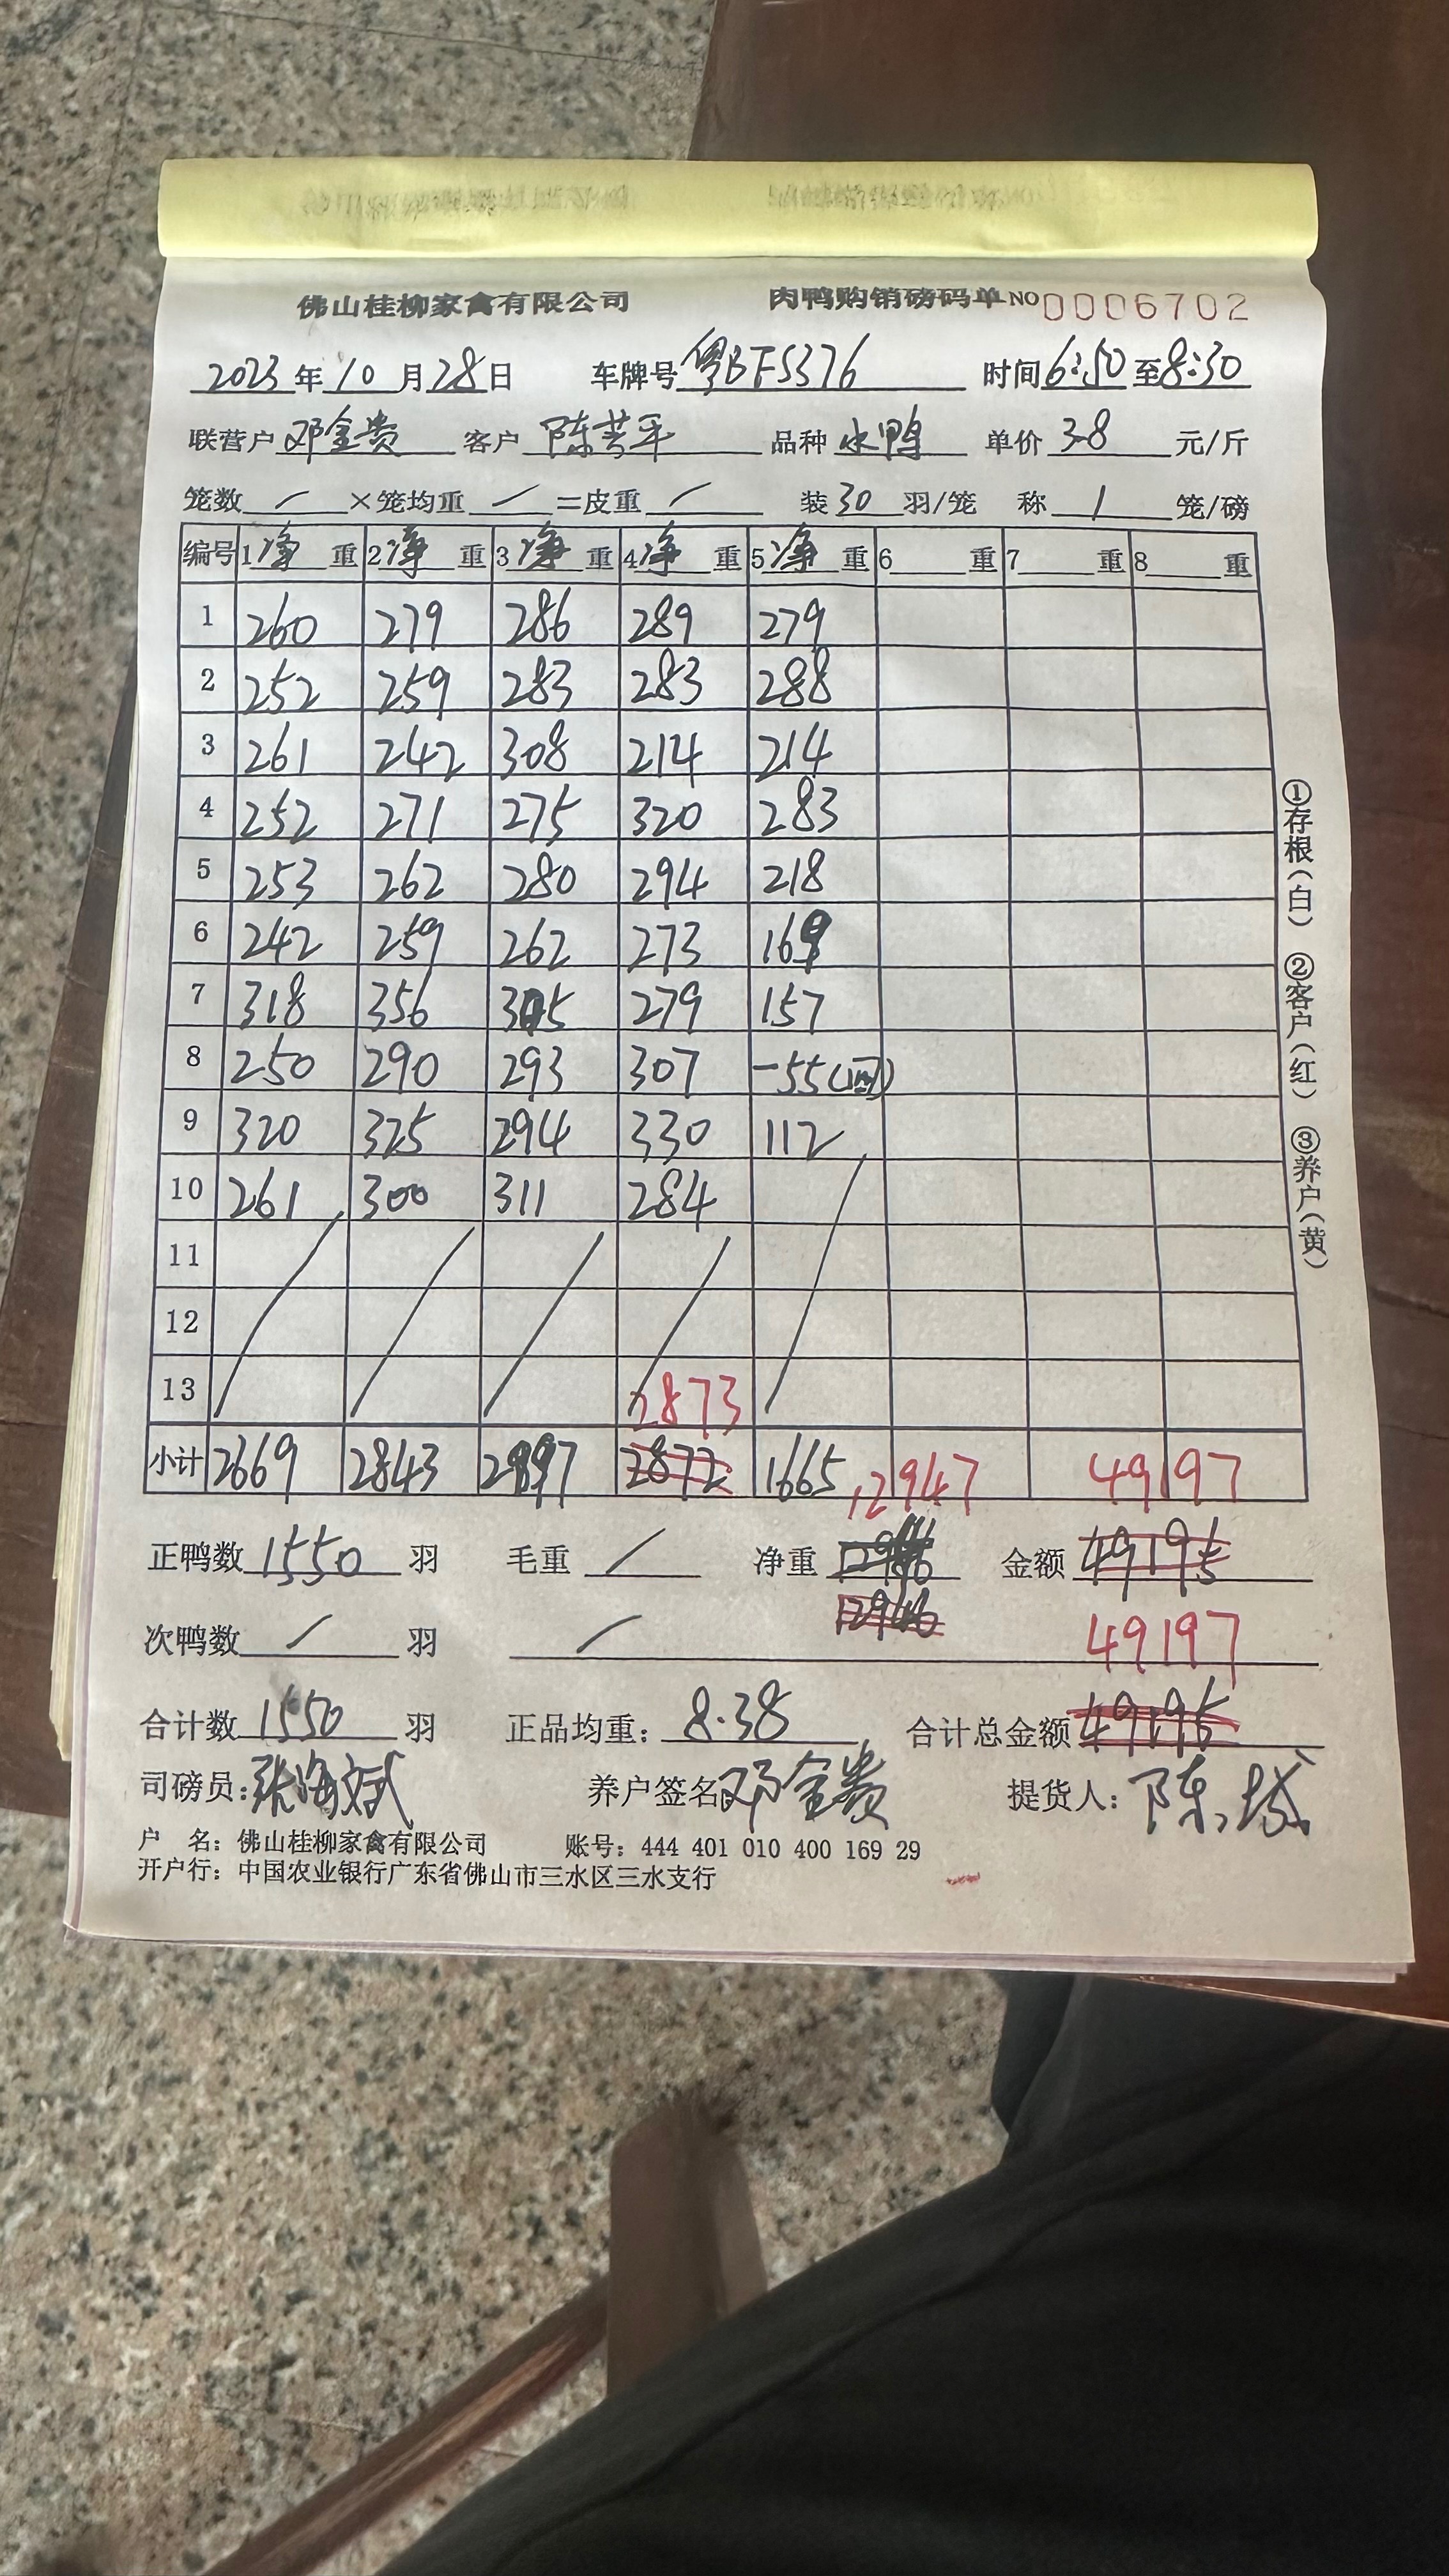 佛山桂柳家禽有限公司 肉鸭购销磅码单 NO 0006702
2023年10月28日 车牌号 粤BF5376 时间 6:50 至 8:30
联营户 邓金贵 客户 陈芸平 品种 水鸭 单价 3.8 元/斤
笼数 / ×笼均重 / =皮重 / 装 30 羽/笼 称 1 笼/磅
编号 1 净 重 2 净 重 3 净 重 4 净 重 5 净 重 6 重 7 重 8 重
1 260 279 286 289 279
2 252 259 283 283 288
3 261 242 308 214 214
4 252 271 275 320 283
5 253 262 280 294 218
6 242 259 262 273 169
7 318 356 305 279 157
8 250 290 293 307 -55
9 320 325 294 330 112
10 261 300 311 284
11
12
13 2873
小计 2669 2843 2897 2872 1665 12947 49197
正鸭数 1550 羽 毛重 / 净重 金额 49195
12946
次鸭数 / 羽 / 49197
合计数 1550 羽 正品均重: 8.38 合计总金额 49195
司磅员: 张海斌 养户签名 邓金贵 提货人: 陈
户 名: 佛山桂柳家禽有限公司 账号: 444 401 010 400 169 29
开户行: 中国农业银行广东省佛山市三水区三水支行
①存根(白) ②客户(红) ③养户(黄)